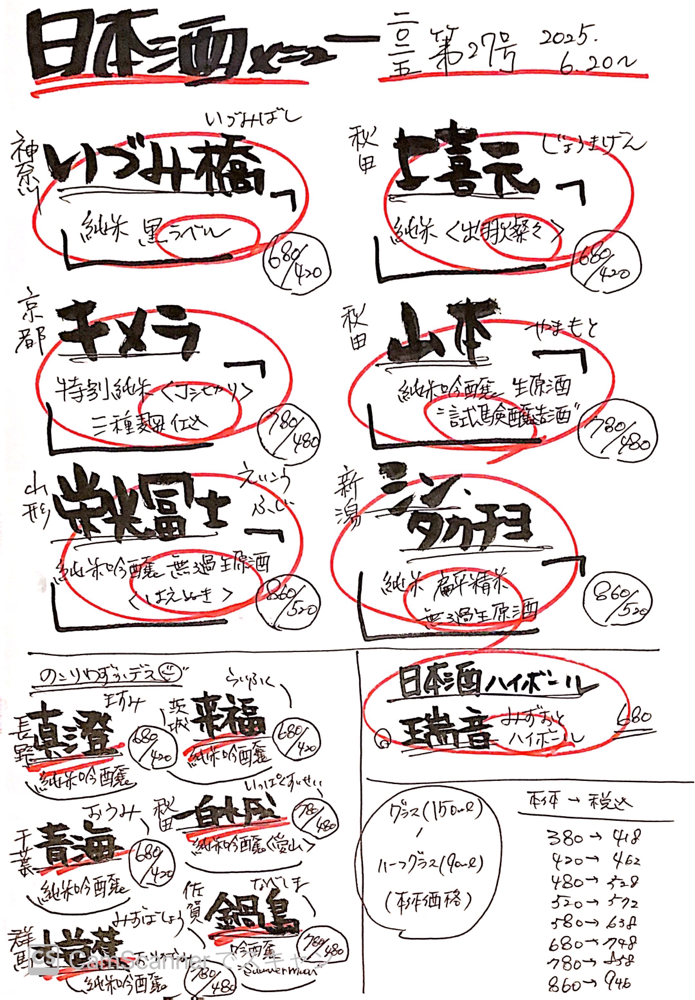 日本酒メニュー
二〇二五 第27号 2025. 6.20〜
神奈川
いづみばし
いづみ橋
純米 黒ラベル
680/420
秋田
じょうきげん
上喜元
純米〈出羽燦々〉
680/420
京都
キメラ
特別純米〈コシヒカリ〉
三種麹仕込
780/480
秋田
山本
やまもと
純米吟醸 生原酒
"試験醸造酒"
780/480
山形
栄光冨士
えいこう
ふじ
純米吟醸 無ろ過生原酒
〈はえぬき〉
860/520
新潟
シン・
タカチヨ
純米 扁平精米
無ろ過生原酒
860/520
のこりわずかデス
長野
ますみ
真澄
純米吟醸
680/420
茨城
らいふく
来福
純米吟醸
680/420
千葉
おうみ
青海
純米吟醸
680/420
秋田
いっぱくすいせい
一白水成
純米吟醸〈愛山〉
780/480
群馬
みずばしょう
純米吟醸
780/480
佐賀
なべしま
鍋島
吟醸
"Summer Moon"
780/480
日本酒ハイボール
瑞音 みずおと
ハイボール
680
グラス(150ml)
/
ハーフグラス(90ml)
(本体価格)
本体 → 税込
380→ 418
420→ 462
480→ 528
520→ 572
580→ 638
680→ 748
780→ 858
860→ 946
CS CamScannerでスキャン